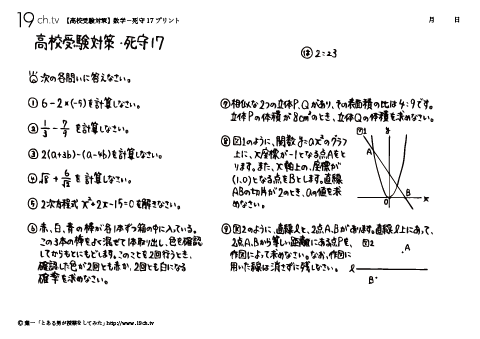 19ch.tv 【高校受験対策】数学－死守17プリント 月 日
高校受験対策・死守17
次の各問いに答えなさい。
① 6－2×(－5)を計算しなさい。
② 1/3－7/9を計算しなさい。
③ 2(a+3b)－(a－4b)を計算しなさい。
④ √8+6/√2を計算しなさい。
⑤ 2次方程式x²+2x－15=0を解きなさい。
⑥ 赤、白、青の棒が各1本ずつ箱の中に入っている。
この3本の棒をよく混ぜて1本取り出し、色を確認
してからもとにもどします。このことを2回行うとき、
確認した色が2回とも赤か、2回とも白になる
確率を求めなさい。
⑦ 相似な2つの立体P、Qがあり、その表面積の比は4:9です。
立体Pの体積が8cm³のとき、立体Qの体積を求めなさい。
⑧ 図1のように、関数y=ax²のグラフ
上に、x座標が－1となる点Aをと
ります。また、x軸上の、座標が
(1,0)となる点をBとします。直線
ABの切片が2のとき、aの値を求
めなさい。
図1 y
A
B
0 x
⑨ 図2のように、直線ℓと、2点A、Bがあります。直線ℓ上にあって、
2点A、Bから等しい距離にある点Pを、
作図によって求めなさい。なお、作図に
用いた線は消さずに残しなさい。
図2
A
ℓ
B
©葉一「とある男が授業をしてみた」http://www.19ch.tv